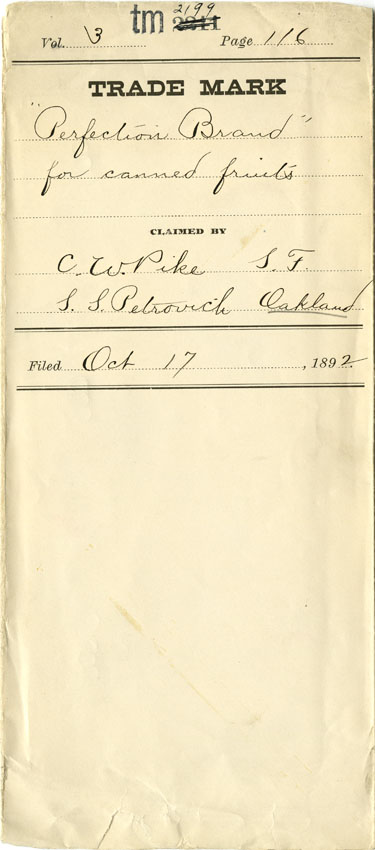 tm 2199
2211
Vol. 3 Page 116
TRADE MARK
"Perfection Brand"
for canned fruits
CLAIMED BY
C. W. Pike S. F.
S. S. Petrovich Oakland
Filed Oct 17, 1892.